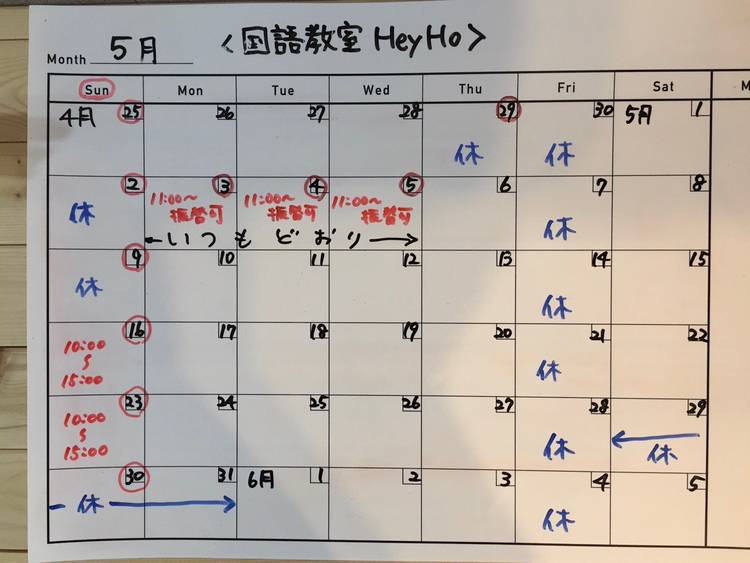 Month 5月 <国語教室 HeyHo>
Sun Mon Tue Wed Thu Fri Sat M
4月 25 26 27 28 29 30 5月 1
休 休
2 3 4 5 6 7 8
休 11:00〜 11:00〜 11:00〜 休
振替可 振替可 振替可
←いつもどおり→
9 10 11 12 13 14 15
休 休
16 17 18 19 20 21 22
10:00 休
〜
15:00
23 24 25 26 27 28 29
10:00 休 ← 休
〜
15:00
30 31 6月 1 2 3 4 5
休 → 休